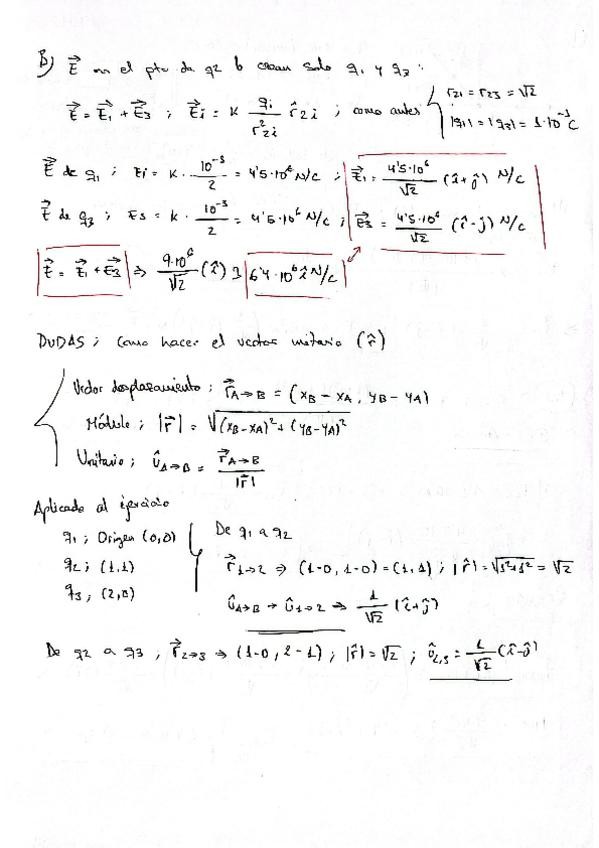 B) E⃗ en el pto de q2 lo crean solo q1 y q3:
E⃗ = E⃗1 + E⃗3 ; E⃗i = K qi/r²2i r̂2i ; como antes { r21 = r23 = √2
|q1| = |q3| = 1·10⁻³C
E⃗ de q1 ; Ei = K · 10⁻³/2 = 4'5·10⁶ N/C ; E⃗1 = 4'5·10⁶/√2 (î+ĵ) N/C
E⃗ de q3 ; E3 = K · 10⁻³/2 = 4'5·10⁶ N/C ; E⃗3 = 4'5·10⁶/√2 (î-ĵ) N/C
E⃗ = E⃗1 + E⃗3 ⇒ 9·10⁶/√2 (î) ; 6'4·10⁶ î N/C
DUDAS ; Como hacer el vector unitario (r̂)
Vector desplazamiento ; r⃗A→B = (xB - xA, yB - yA)
Módulo ; |r⃗| = √(xB-xA)²+(yB-yA)²
Unitario ; ûA→B = r⃗A→B/|r⃗|
Aplicado al ejercicio
q1 ; Origen (0,0)
q2 ; (1,1)
q3 ; (2,0)
De q1 a q2
r⃗1→2 ⇒ (1-0, 1-0) = (1,1) ; |r⃗| = √1²+1² = √2
ûA→B → û1→2 ⇒ 1/√2 (î+ĵ)
De q2 a q3 ; r⃗2→3 ⇒ (1-0, 2-1) ; |r⃗| = √2 ; û2,3 = 1/√2 (î-ĵ)